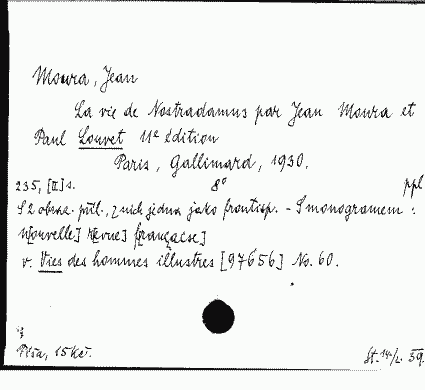 Moura, Jean
La vie de Nostradamus par Jean Moura et
Paul Louvet 11e édition
Paris, Gallimard, 1930.
235, [II] s. 8° ppl
S 2 obraz. příl., z nich jedna jako frontisp. - S monogramem:
N[ouvelle] R[evue] F[rançaise]
v. Vies des hommes illustres [97656] No. 60.
Píša, 15 Kč. St. 14/2. 59.